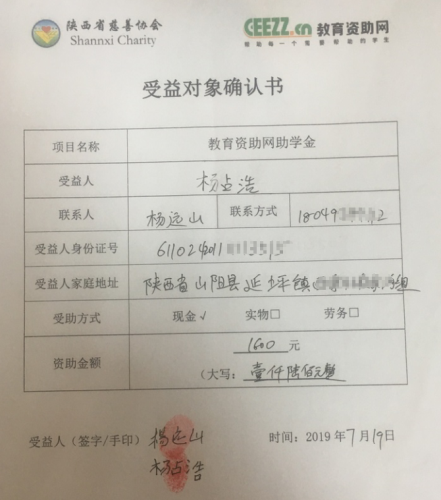 陕西省慈善协会
Shannxi Charity
CEEZZ.cn 教育资助网
帮助每一个需要帮助的学生
受益对象确认书
项目名称 教育资助网助学金
受益人 杨占浩
联系人 杨远山 联系方式 18049
受益人身份证号
受益人家庭地址 陕西省山阳县延坪镇 组
受助方式 现金√ 实物□ 劳务□
资助金额 1600 元
(大写: 壹仟陆佰元整
受益人(签字/手印) 杨远山 时间: 2019年7月19日
杨占浩